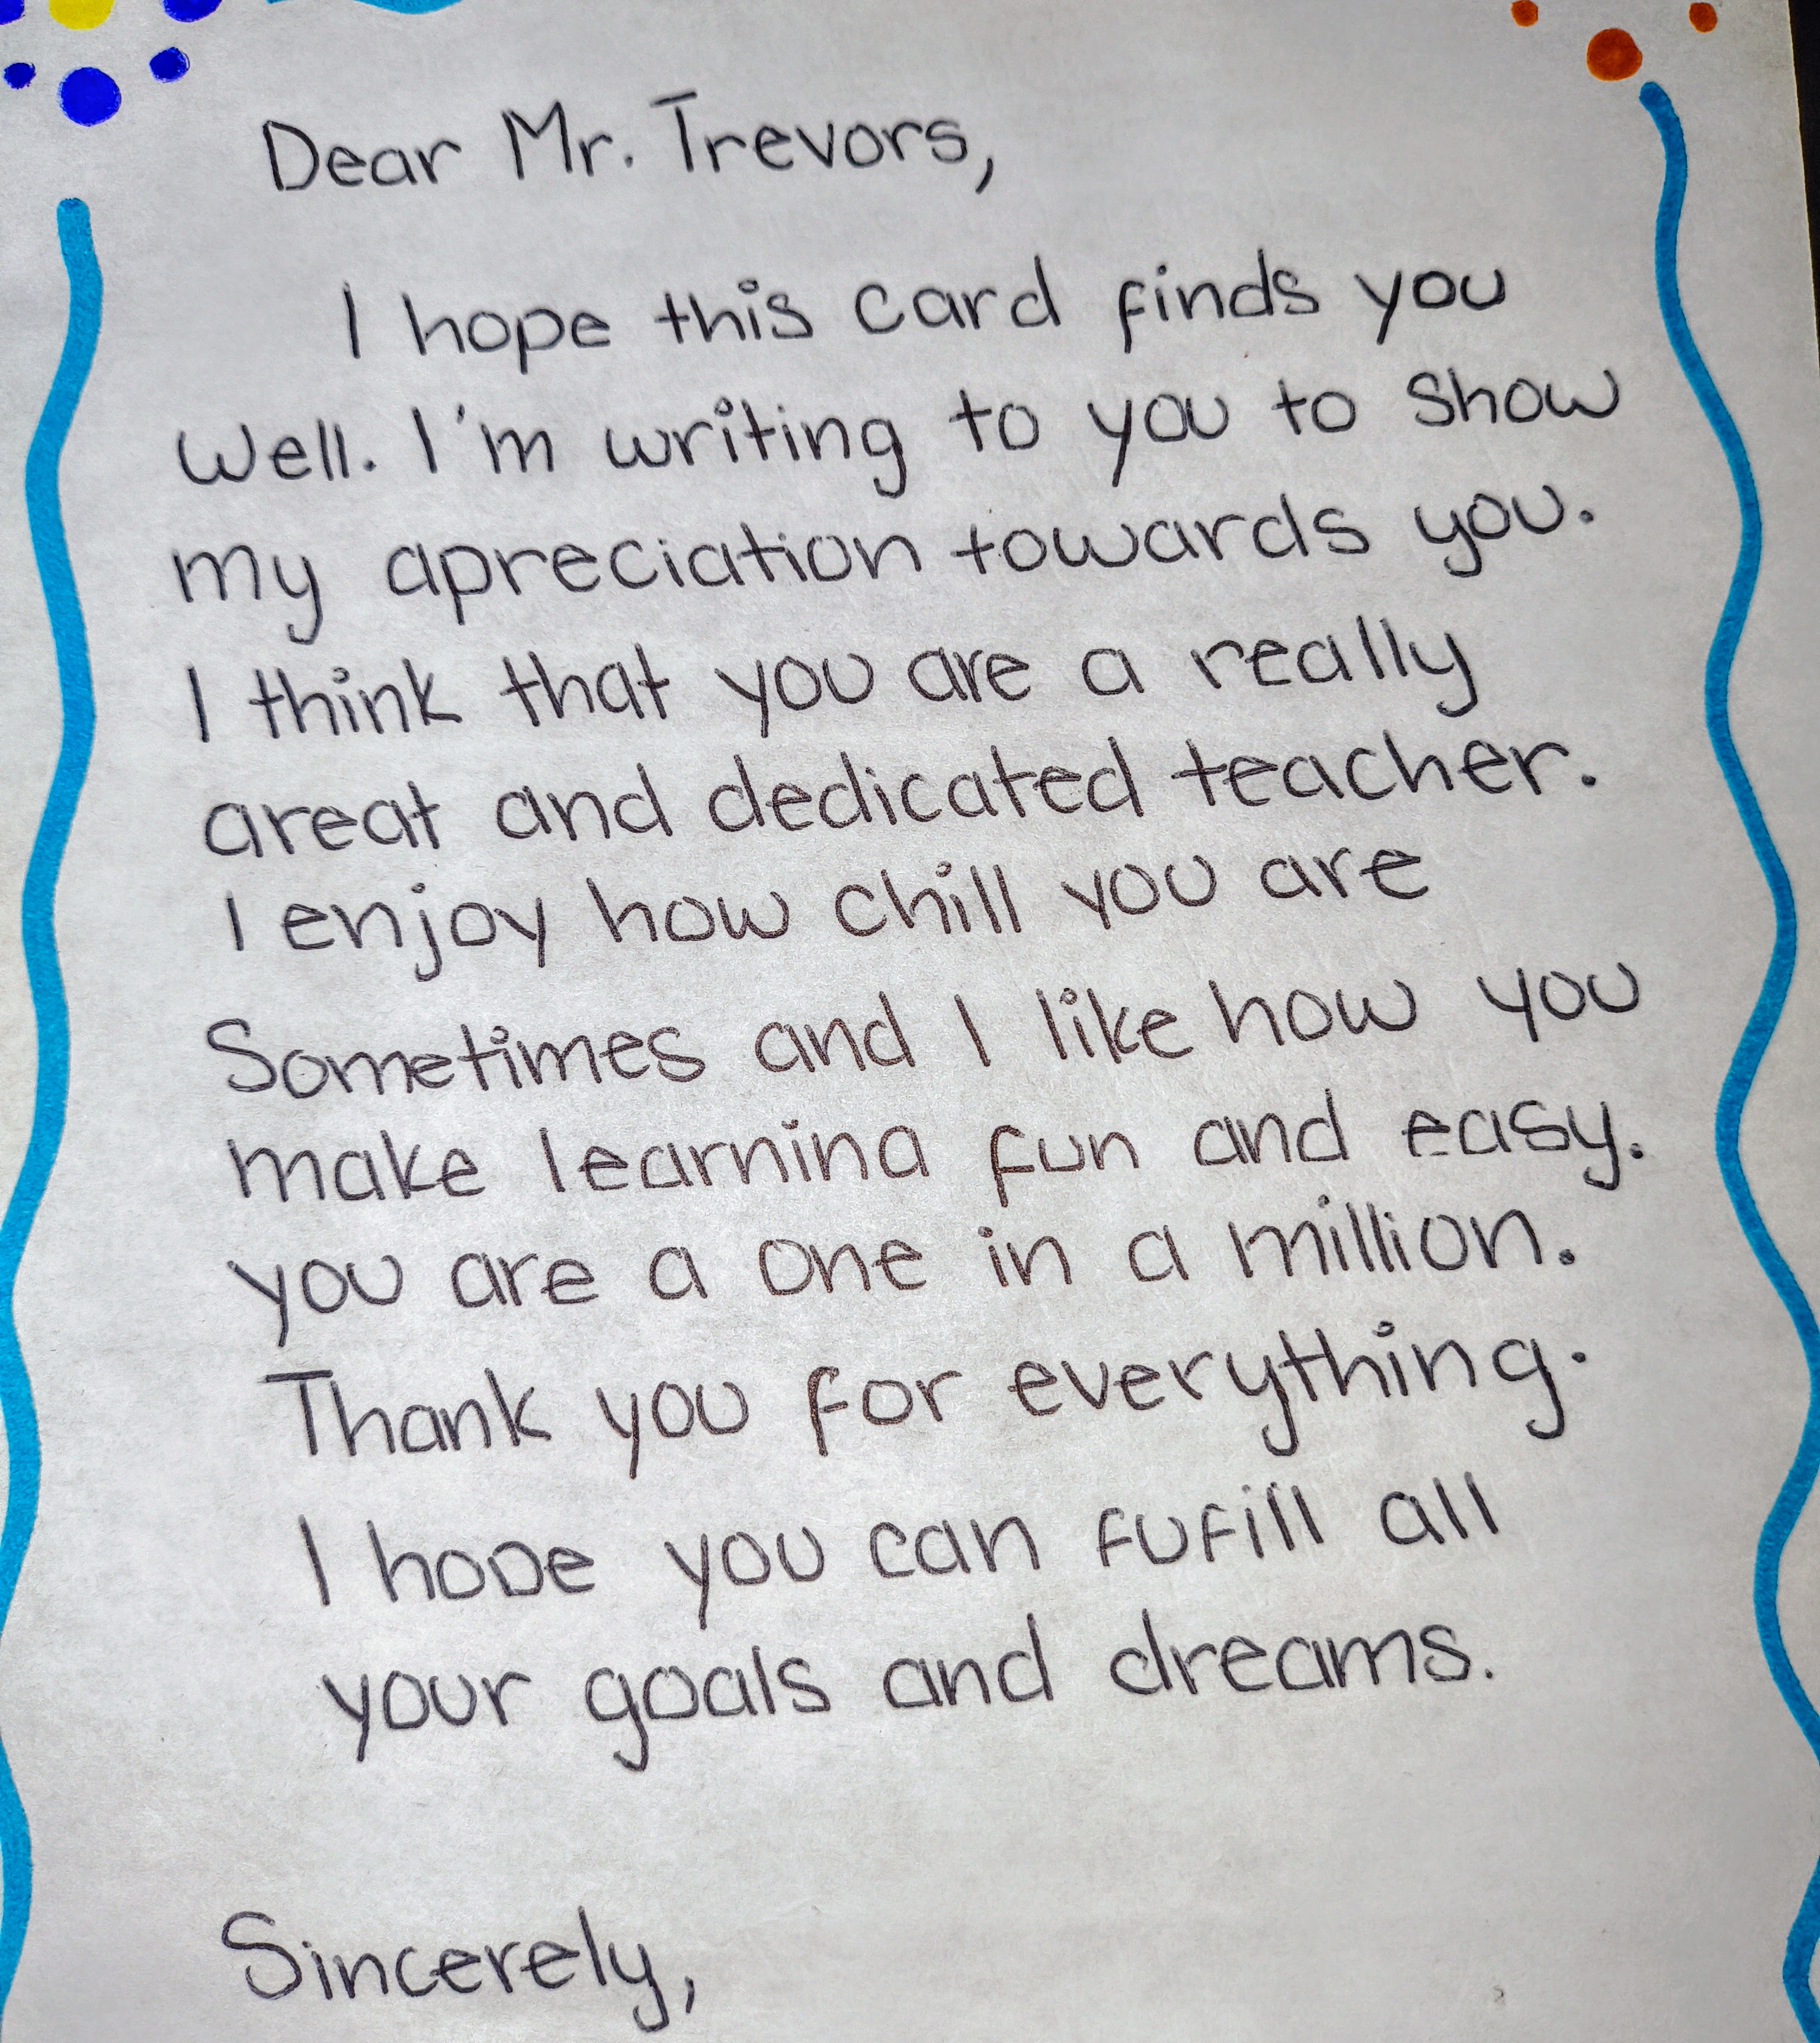 Dear Mr. Trevors,
I hope this card finds you
well. I'm writing to you to show
my apreciation towards you.
I think that you are a really
great and dedicated teacher.
I enjoy how chill you are
Sometimes and I like how you
make learning fun and easy.
you are a one in a million.
Thank you for everything.
I hope you can fufill all
your goals and dreams.
Sincerely,